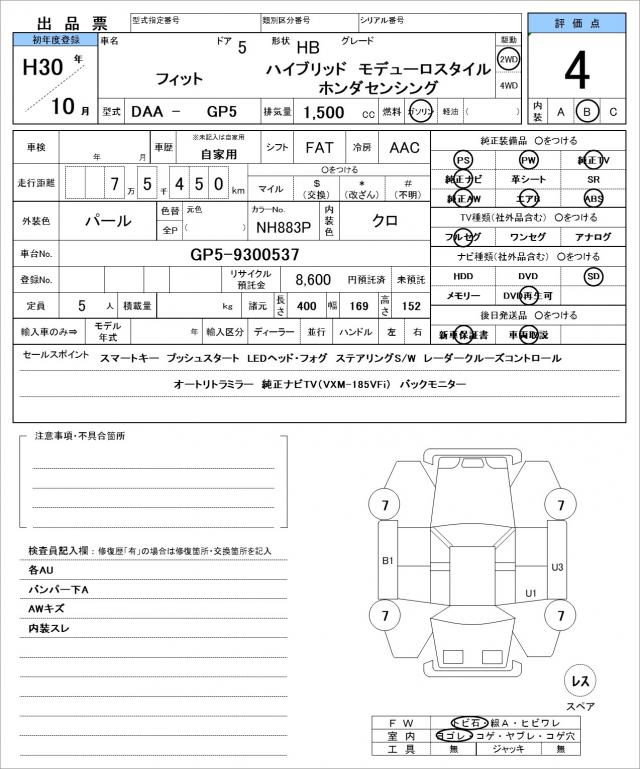 出品票 型式指定番号 類別区分番号 シリアル番号 評価点
初年度登録 車名 ドア 5 形状 HB グレード 駆動
H30 年 フィット ハイブリッド モデューロスタイル 2WD 4
ホンダセンシング 4WD
10 月 型式 DAA － GP5 排気量 1,500 cc 燃料 ガソリン 軽油 ( ) 内装 A B C
車検 年 月 車歴 ※未記入は自家用 自家用 シフト FAT 冷房 AAC 純正装備品 〇をつける
PS PW 純正TV
走行距離 7 万 5 千 4 5 0 km 〇をつける マイル $ (交換) * (改ざん) # (不明) 純正ナビ 革シート SR
純正AW エアB ABS
外装色 パール 色替 元色 全P ( ) カラーNo. NH883P 内装色 クロ TV種類(社外品含む) 〇をつける
フルセグ ワンセグ アナログ
車台No. GP5-9300537 ナビ種類(社外品含む) 〇をつける
登録No. リサイクル預託金 8,600 円預託済 未預託 HDD DVD SD
定員 5 人 積載量 kg 諸元 長さ 400 幅 169 高さ 152 メモリー DVD再生可
後日発送品 〇をつける
輸入車のみ⇒ モデル年式 年 輸入区分 ディーラー 並行 ハンドル 左 右 新車保証書 車両取説
セールスポイント スマートキー プッシュスタート LEDヘッド・フォグ ステアリングS/W レーダークルーズコントロール
オートリトラミラー 純正ナビTV(VXM-185VFi) バックモニター
注意事項・不具合箇所
7 7
検査員記入欄：修復歴「有」の場合は修復箇所・交換箇所を記入
各AU
バンパー下A
AWキズ
内装スレ
B1 U3
U1
7 7
レス
スペア
FW トビ石・線A・ヒビワレ
室内 ヨゴレ・コゲ・ヤブレ・コゲ穴
工具 無 ジャッキ 無